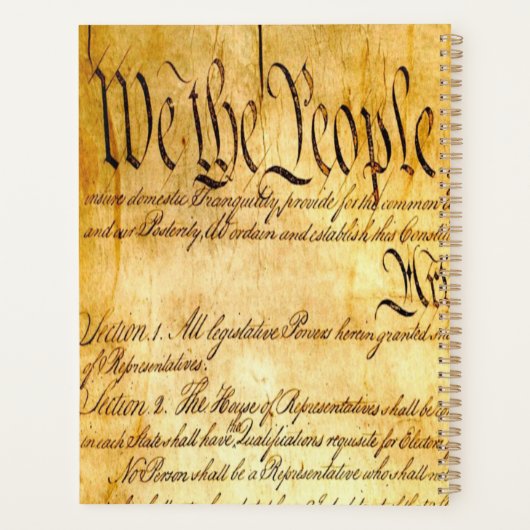 We the People
insure domestic Tranquility, provide for the common
and our Posterity, do ordain and establish this Constit
Art
Section. 1. All legislative Powers herein granted sha
of Representatives.
Section. 2. The House of Representatives shall be co
the
in each State shall have Qualifications requisite for Electors
No Person shall be a Representative who shall not